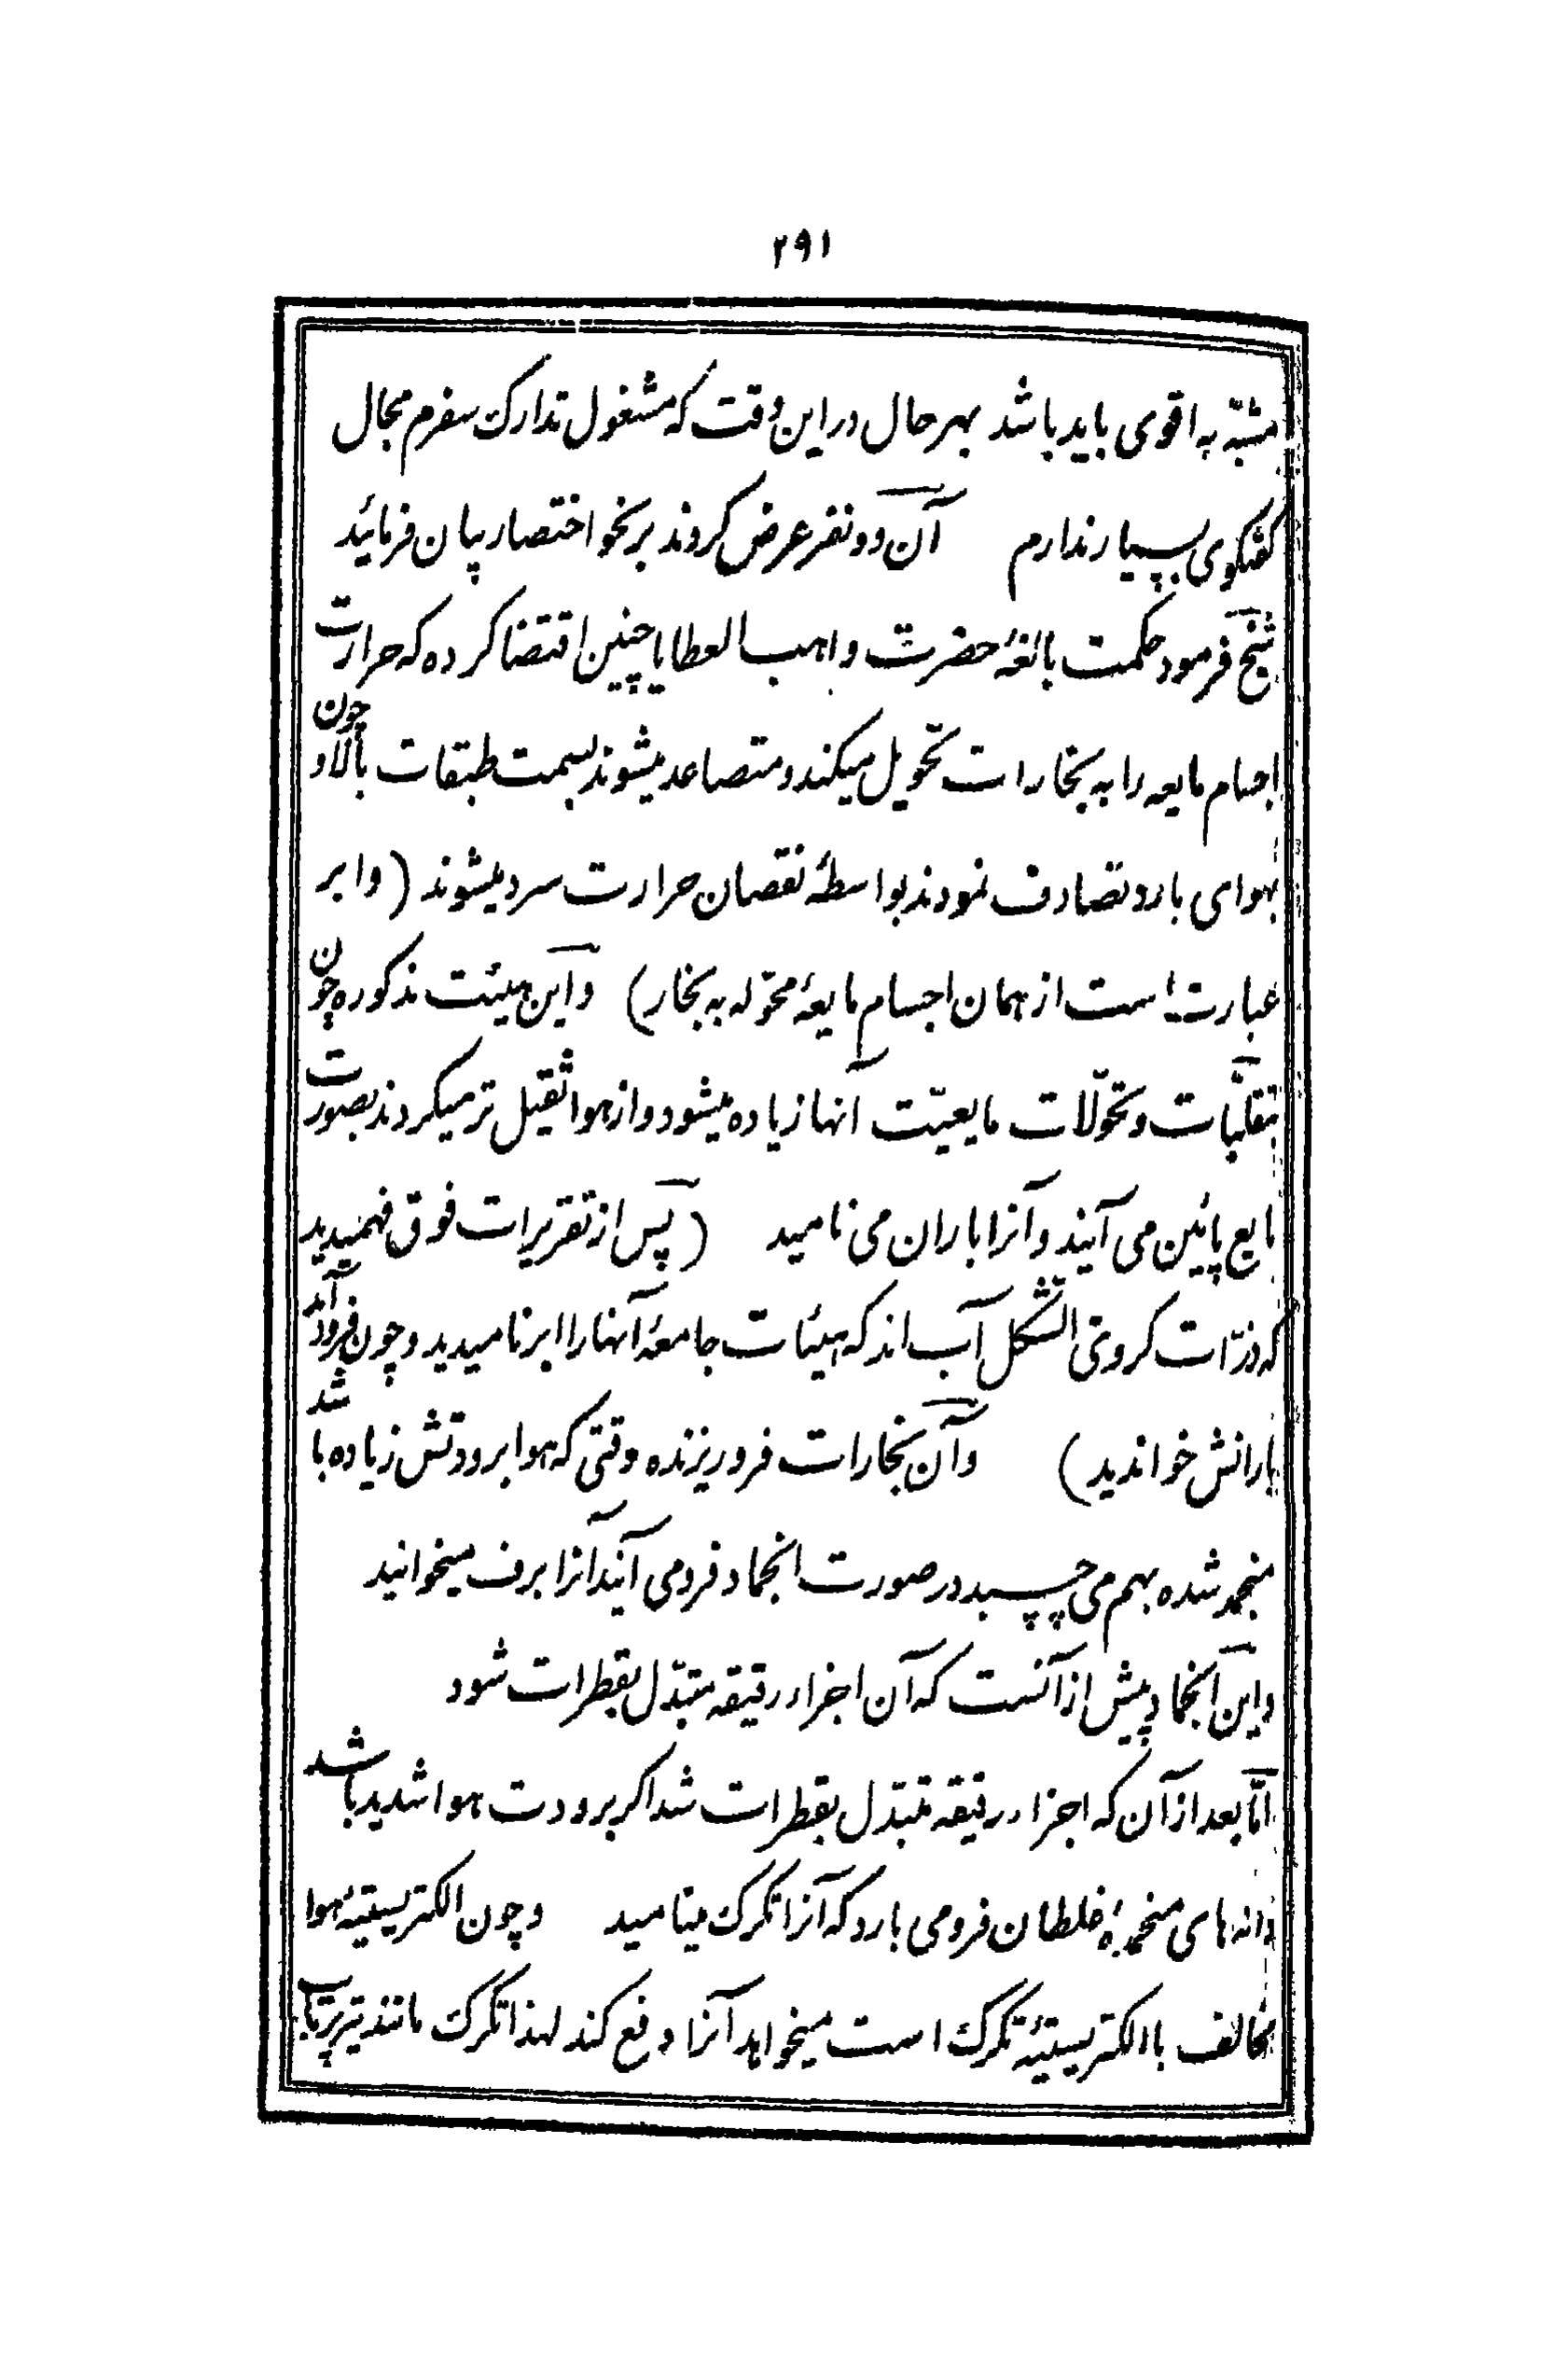 ۲۹۱
مشبّه به اقوی باید باشد بهرحال در این وقت که مشغول تدارک سفرم مجال
کفتکوی بسیار ندارم آن دو نفر عرض کردند بر نحو اختصار بیان فرمائید
شیخ فرمود حکمت بالغهٔ حضرت واهب العطایا چنین اقتضا کرده که حرارت
اجسام مایعه را به بخارات تحویل میکند و متصاعد میشوند بسمت طبقات بالا و چون
بهوای بارد تصادف نمودند بواسطهٔ نقصان حرارت سرد میشوند (و ابر
عبارت است از همان اجسام مایعهٔ محوّله به بخار) و این هیئت مذکوره چون
بتقلّبات و تحوّلات مایعیّت آنها زیاده میشود و از هوا ثقیل تر میکردند بصورت
مایع پائین می آیند و آنرا باران می نامید (پس از تقریرات فوق فهمیدید
که ذرّات کرویّ الشّکل آب اند که هیئات جامعهٔ آنها را ابر نامیدید و چون فرود آمد
بارانش خواندید) و آن بخارات فروریزنده وقتی که هوا برودتش زیاده باشد
منجمد شده بهم می چسبد در صورت انجماد فرو می آیند آنرا برف میخوانید
و این انجماد پیش از آنست که آن اجزاء رقیقه متبدّل بقطرات شود
امّا بعد از آن که اجزاء رقیقه متبدّل بقطرات شد اکر برودت هوا شدید باشد
دانه های منجمدهٔ غلطان فرو می بارد که آنرا تکرک مینامید و چون الکتریسیتیهٔ هوا
مخالف با الکتریسیتیهٔ تکرک است میخواهد آنرا دفع کند لهذا تکرک مانند تیر پرتاب